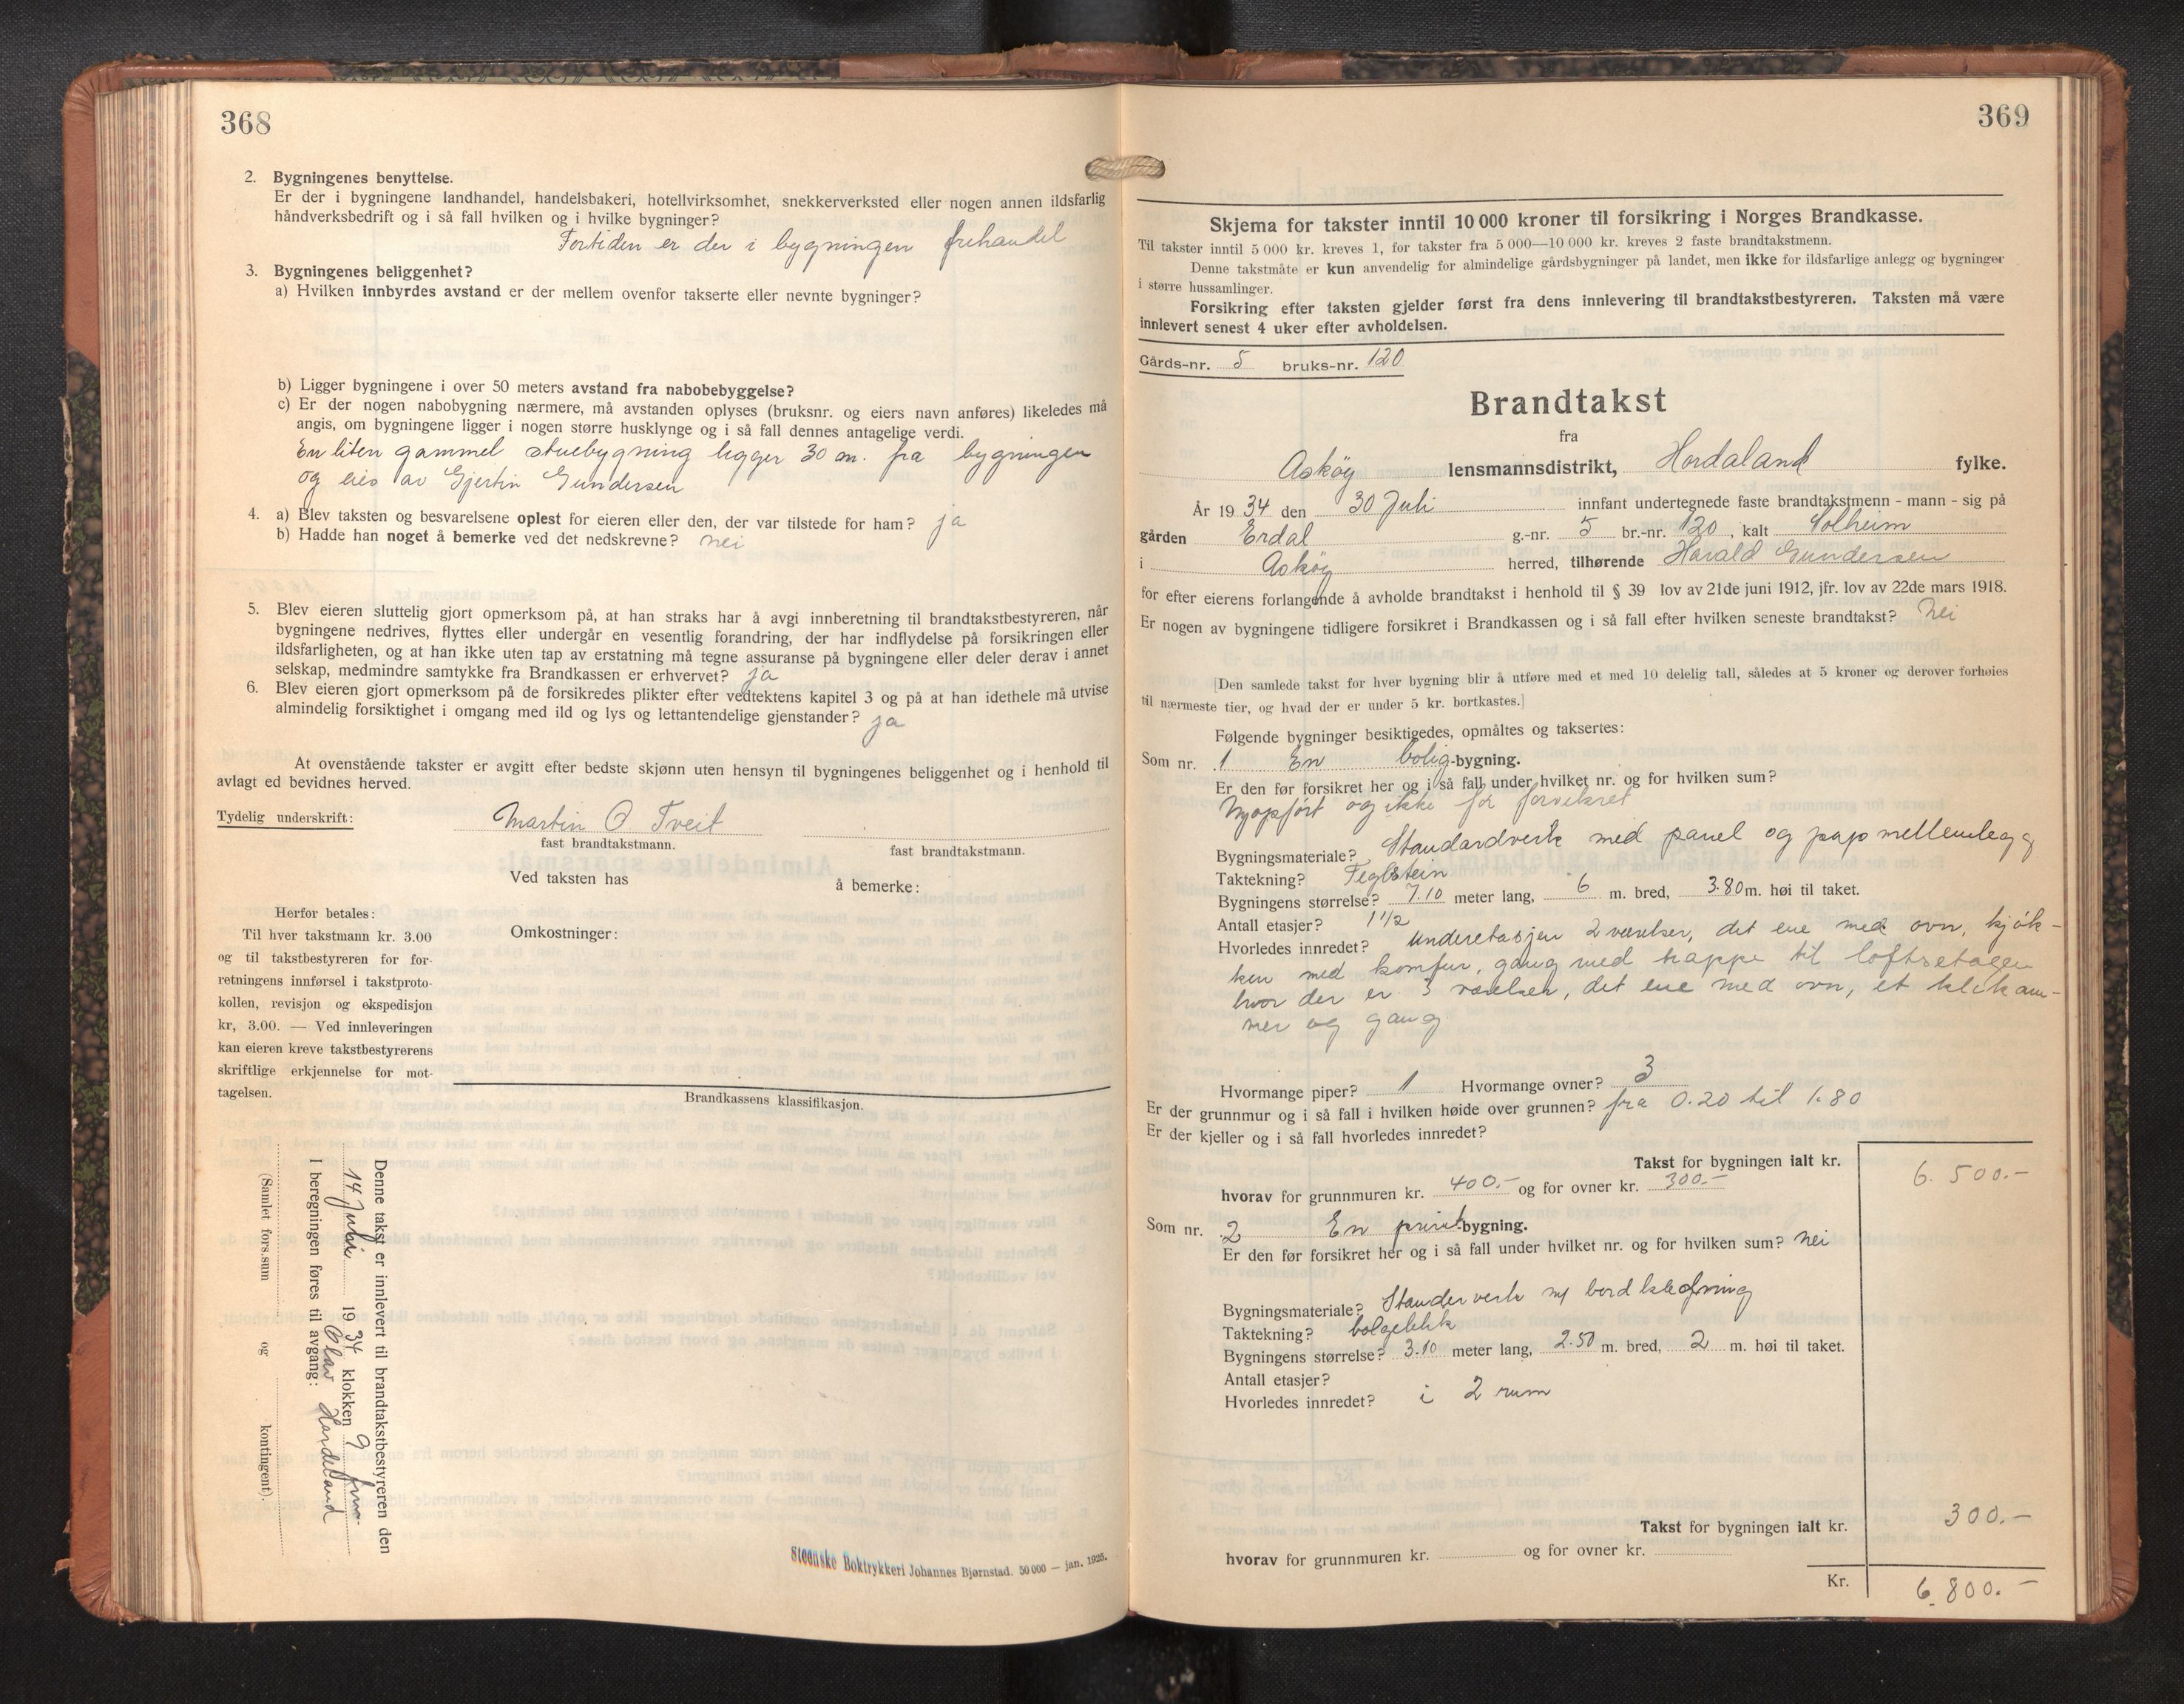 368
2. Bygningenes benyttelse.
Er der i bygningene landhandel, handelsbakeri, hotellvirksomhet, snekkerverksted eller nogen annen ildsfarlig
håndverksbedrift og i så fall hvilken og i hvilke bygninger?
Fortiden er der i bygningen frihandel
3. Bygningenes beliggenhet?
a) Hvilken innbyrdes avstand er der mellem ovenfor takserte eller nevnte bygninger?
b) Ligger bygningene i over 50 meters avstand fra nabobebyggelse?
c) Er der nogen nabobygning nærmere, må avstanden oplyses (bruksnr. og eiers navn anføres) likeledes må
angis, om bygningene ligger i nogen større husklynge og i så fall dennes antagelige verdi.
En liten gammel stuebygning ligger 30 m. fra bygningen
og eies av Gjertin Gundersen
4. a) Blev taksten og besvarelsene oplest for eieren eller den, der var tilstede for ham? ja
b) Hadde han noget å bemerke ved det nedskrevne? nei
5. Blev eieren sluttelig gjort opmerksom på, at han straks har å avgi innberetning til brandtakstbestyreren, når
bygningene nedrives, flyttes eller undergår en vesentlig forandring, der har indflydelse på forsikringen eller
ildsfarligheten, og at han ikke uten tap av erstatning må tegne assuranse på bygningene eller deler derav i annet
selskap, medmindre samtykke fra Brandkassen er erhvervet? ja
6. Blev eieren gjort opmerksom på de forsikredes plikter efter vedtektens kapitel 3 og på at han idethele må utvise
almindelig forsiktighet i omgang med ild og lys og lettantendelige gjenstander? ja
At ovenstående takster er avgitt efter bedste skjønn uten hensyn til bygningenes beliggenhet og i henhold til
avlagt ed bevidnes herved.
Tydelig underskrift: Martin O Tveit
fast brandtakstmann. fast brandtakstmann.
Ved taksten has å bemerke:
Herfor betales:
Til hver takstmann kr. 3.00
og til takstbestyreren for for-
retningens innførsel i takstproto-
kollen, revisjon og ekspedisjon
kr, 3.00. — Ved innleveringen
kan eieren kreve takstbestyrerens
skriftlige erkjennelse for mot-
tagelsen.
Omkostninger:
Brandkassens klassifikasjon.
Denne takst er innlevert til brandtakstbestyreren den
14 Juli 1934 klokken 9 fm.
Olav Hordeland
I beregningen føres til avgang:
(Samlet fors.sum og kontingent).
Steenske Boktrykkeri Johannes Bjørnstad. 50 000 — jan. 1925.
369
Skjema for takster inntil 10 000 kroner til forsikring i Norges Brandkasse.
Til takster inntil 5 000 kr. kreves 1, for takster fra 5 000—10 000 kr. kreves 2 faste brandtakstmenn.
Denne takstmåte er kun anvendelig for almindelige gårdsbygninger på landet, men ikke for ildsfarlige anlegg og bygninger
i større hussamlinger.
Forsikring efter taksten gjelder først fra dens innlevering til brandtakstbestyreren. Taksten må være
innlevert senest 4 uker efter avholdelsen.
Gårds-nr. 5 bruks-nr. 120
Brandtakst
fra
Askøy lensmannsdistrikt, Hordaland fylke.
År 1934 den 30 Juli innfant undertegnede faste brandtakstmenn - mann - sig på
gården Erdal g.-nr. 5 br.-nr. 120, kalt Solheim
i Askøy herred, tilhørende Harald Gundersen
for efter eierens forlangende å avholde brandtakst i henhold til § 39 lov av 21de juni 1912, jfr. lov av 22de mars 1918.
Er nogen av bygningene tidligere forsikret i Brandkassen og i så fall efter hvilken seneste brandtakst? Nei
[Den samlede takst for hver bygning blir å utføre med et med 10 delelig tall, således at 5 kroner og derover forhøies
til nærmeste tier, og hvad der er under 5 kr. bortkastes.]
Følgende bygninger besiktigedes, opmåltes og taksertes:
Som nr. 1 En bolig-bygning.
Er den før forsikret her og i så fall under hvilket nr. og for hvilken sum?
Nyopført og ikke før forsikret
Bygningsmateriale? Standardverk med panel og papmellemlegg
Taktekning? Teglstein
Bygningens størrelse? 7.10 meter lang, 6 m. bred, 3.80 m. høi til taket.
Antall etasjer? 1 1/2
Hvorledes innredet? Underetasjen 2 værelser, det ene med ovn, kjøk-
ken med komfur, gang med trappe til loftsetagen
hvor der er 3 værelser, det ene med ovn, et klekam-
mer og gang.
Hvormange piper? 1 Hvormange ovner? 3
Er der grunnmur og i så fall i hvilken høide over grunnen? fra 0.20 til 1.80
Er der kjeller og i så fall hvorledes innredet?
Takst for bygningen ialt kr. 6.500.-
hvorav for grunnmuren kr. 400.- og for ovner kr. 300.-
Som nr. 2 En privat-bygning.
Er den før forsikret her og i så fall under hvilket nr. og for hvilken sum? Nei
Bygningsmateriale? Standerverk m/ bordklædning
Taktekning? bølgeblik
Bygningens størrelse? 3.10 meter lang, 2.50 m. bred, 2 m. høi til taket.
Antall etasjer?
Hvorledes innredet? i 2 rum
Takst for bygningen ialt kr. 300.-
hvorav for grunnmuren kr. og for ovner kr.
Kr. 6.800.-